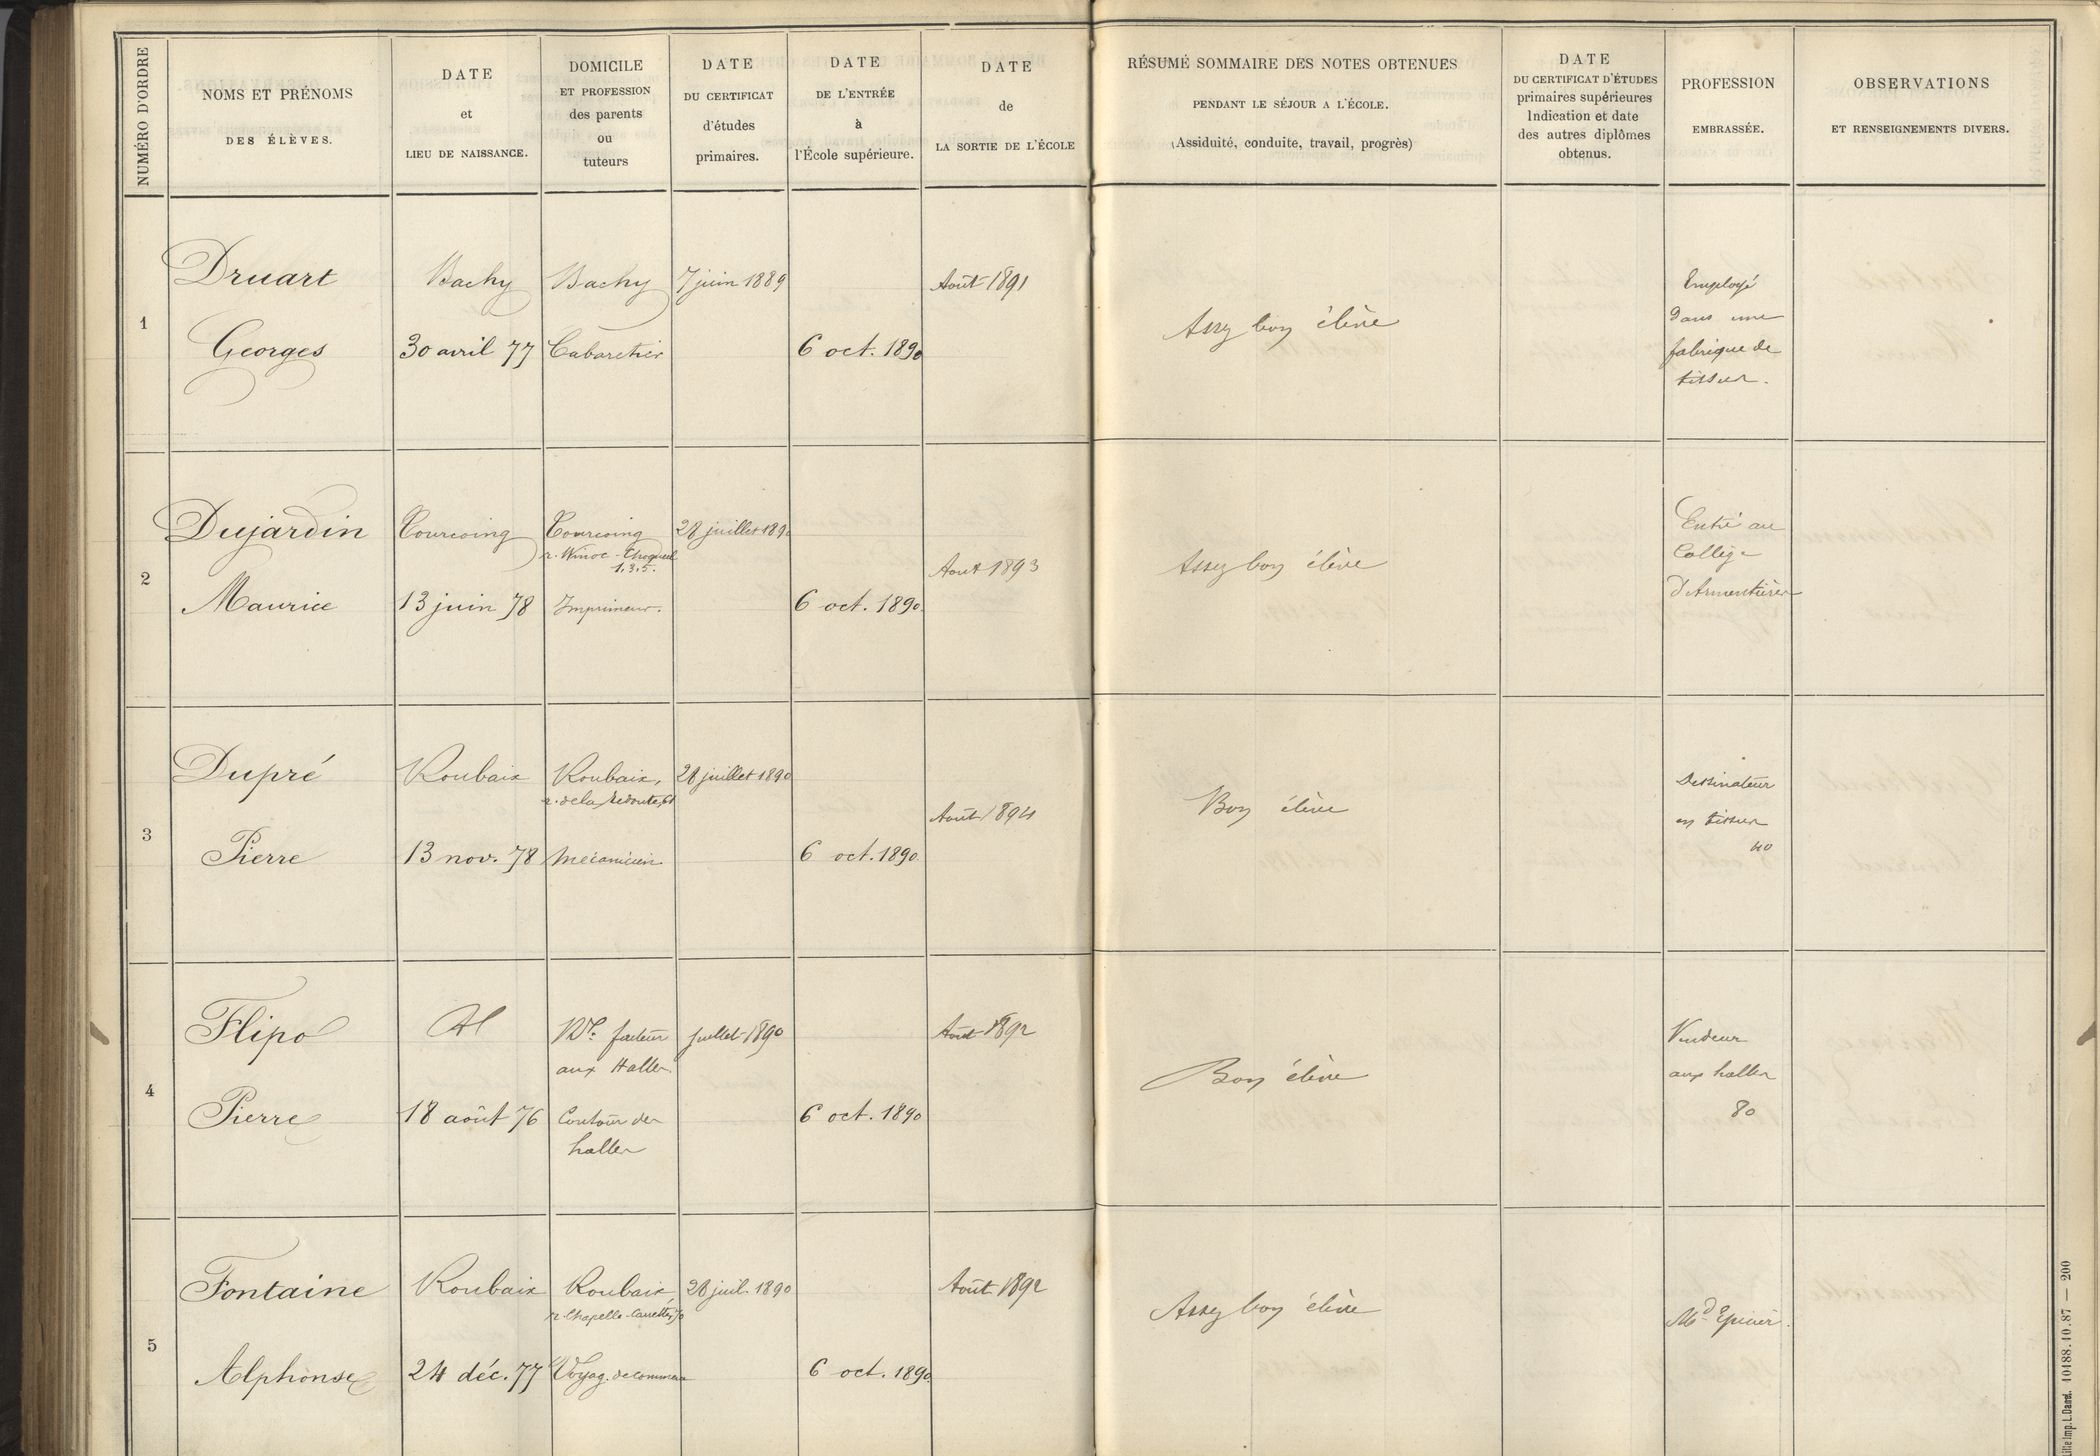 NUMÉRO D'ORDRE
NOMS ET PRÉNOMS
DES ÉLÈVES.
DATE
et
LIEU DE NAISSANCE.
DOMICILE
ET PROFESSION
des parents
ou
tuteurs
DATE
DU CERTIFICAT
d'études
primaires.
DATE
DE L'ENTRÉE
à
l'École supérieure.
DATE
de
LA SORTIE DE L'ÉCOLE
RÉSUMÉ SOMMAIRE DES NOTES OBTENUES
PENDANT LE SÉJOUR A L'ÉCOLE.
(Assiduité, conduite, travail, progrès)
DATE
DU CERTIFICAT D'ÉTUDES
primaires supérieures
Indication et date
des autres diplômes
obtenus.
PROFESSION
EMBRASSÉE.
OBSERVATIONS
ET RENSEIGNEMENTS DIVERS.
1
Druart
Georges
Bachy
30 avril 77
Bachy
Cabaretier
7 juin 1889
6 oct. 1890
Août 1891
Assez bon élève
Employé
dans une
fabrique de
tissus.
2
Dujardin
Maurice
Tourcoing
13 juin 78
Tourcoing
r. Winoc-Choqueel
1.3.5.
Imprimeur.
28 juillet 1890
6 oct. 1890.
Août 1893
Assez bon élève
Entré au
Collège
d'Armentières
3
Dupré
Pierre
Roubaix
13 nov. 78
Roubaix,
r. de la Redoute, 61
Mécanicien
28 juillet 1890
6 oct. 1890
Août 1894
Bon élève
Dessinateur
en tissus
40
4
Flipo
Pierre
Id
18 août 76
facteur
aux Halles.
Contour des
halles
Juillet 1890
6 oct. 1890
Août 1892
Bon élève
Vendeur
aux halles
80
5
Fontaine
Alphonse
Roubaix
24 déc. 77
Roubaix,
r. Chapelle-Carette, 70
Voyag. de commerce
28 juil. 1890
6 oct. 1890.
Août 1892
Assez bon élève
Md Epicier.
Lille Imp. L. Danel. 10188.10.87 — 200